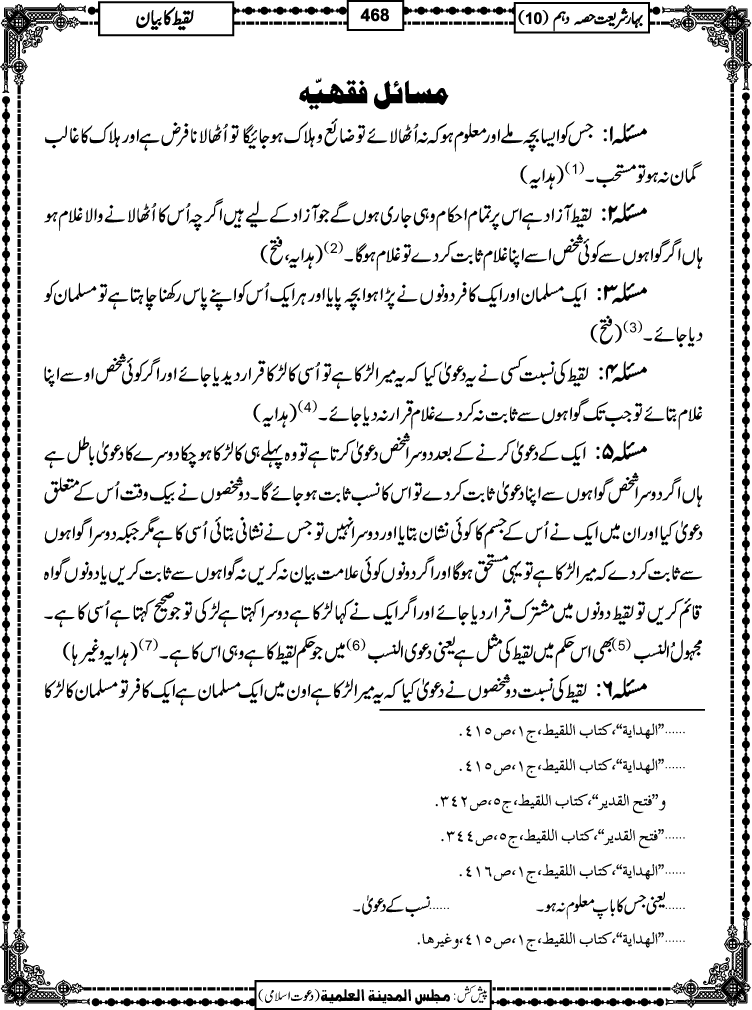 بہارِ شریعت حصہ دہم (10)
468
لقیط کا بیان
مسائل فقھیّہ
مسئلہ ۱: جس کو ایسا بچہ ملے اور معلوم ہو کہ نہ اُٹھا لائے تو ضائع و ہلاک ہو جائیگا تو اُٹھا لانا فرض ہے اور ہلاک کا غالب
گمان نہ ہو تو مستحب۔(1) (ہدایہ)
مسئلہ ۲: لقیط آزاد ہے اس پر تمام احکام وہی جاری ہوں گے جو آزاد کے لیے ہیں اگرچہ اُس کا اُٹھا لانے والا غلام ہو
ہاں اگر گواہوں سے کوئی شخص اسے اپنا غلام ثابت کردے تو غلام ہوگا۔(2) (ہدایہ، فتح)
مسئلہ ۳: ایک مسلمان اور ایک کافر دونوں نے پڑا ہوا بچہ پایا اور ہر ایک اُس کو اپنے پاس رکھنا چاہتا ہے تو مسلمان کو
دیا جائے۔(3) (فتح)
مسئلہ ۴: لقیط کی نسبت کسی نے یہ دعویٰ کیا کہ یہ میرا لڑکا ہے تو اُسی کا لڑکا قرار دیدیا جائے اور اگر کوئی شخص اوسے اپنا
غلام بتائے تو جب تک گواہوں سے ثابت نہ کردے غلام قرار نہ دیا جائے۔(4) (ہدایہ)
مسئلہ ۵: ایک کے دعویٰ کرنے کے بعد دوسرا شخص دعویٰ کرتا ہے تو وہ پہلے ہی کا لڑکا ہو چکا دوسرے کا دعویٰ باطل ہے
ہاں اگر دوسرا شخص گواہوں سے اپنا دعویٰ ثابت کردے تو اس کا نسب ثابت ہو جائے گا۔ دو شخصوں نے بیک وقت اُس کے متعلق
دعویٰ کیا اور ان میں ایک نے اُس کے جسم کا کوئی نشان بتایا اور دوسرا نہیں تو جس نے نشانی بتائی اُسی کا ہے مگر جبکہ دوسرا گواہوں
سے ثابت کردے کہ میرا لڑکا ہے تو یہی مستحق ہوگا اور اگر دونوں کوئی علامت بیان نہ کریں نہ گواہوں سے ثابت کریں یا دونوں گواہ
قائم کریں تو لقیط دونوں میں مشترک قرار دیا جائے اور اگر ایک نے کہا لڑکا ہے دوسرا کہتا ہے لڑکی تو جو صحیح کہتا ہے اُسی کا ہے۔
مجہولُ النسب (5) بھی اس حکم میں لقیط کی مثل ہے یعنی دعوی النسب (6) میں جو حکم لقیط کا ہے وہی اس کا ہے۔(7) (ہدایہ وغیرہا)
مسئلہ ۶: لقیط کی نسبت دو شخصوں نے دعویٰ کیا کہ یہ میرا لڑکا ہے اون میں ایک مسلمان ہے ایک کافر تو مسلمان کا لڑکا
......”الهداية“، كتاب اللقيط، ج١، ص٤١٥.
......”الهداية“، كتاب اللقيط، ج١، ص٤١٥.
و”فتح القدير“، كتاب اللقيط، ج٥، ص٣٤٢.
......”فتح القدير“، كتاب اللقيط، ج٥، ص٣٤٤.
......”الهداية“، كتاب اللقيط، ج١، ص٤١٦.
......یعنی جس کا باپ معلوم نہ ہو۔ ......نسب کے دعویٰ۔
......”الهداية“، كتاب اللقيط، ج١، ص٤١٥، وغيرها.
پیش کش: مجلس المدينة العلمية (دعوت اسلامی)